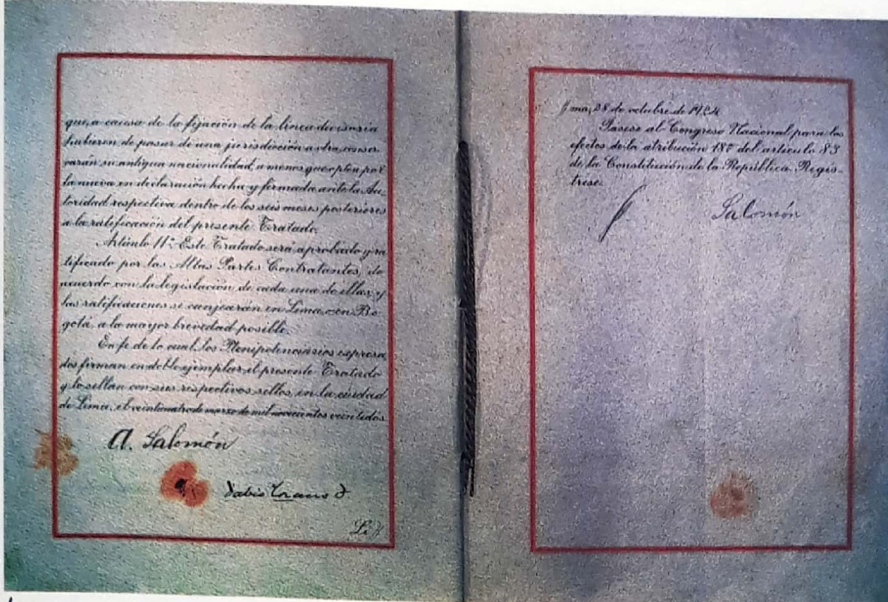 que, a causa de la fijación de la linea divisoria
hubieren de pasar de una jurisdicción a otra, conser
varán su antigua nacionalidad, a menos que opten por
la nueva en declaración hecha y firmada ante la Au-
toridad respectiva dentro de los seis meses posteriores
a la ratificación del presente Tratado.
Artículo 11º Este Tratado será aprobado y ra
tificado por las Altas Partes Contratantes, de
acuerdo con la legislación de cada una de ellas, y
las ratificaciones se canjearán en Lima o en Bo
gotá, a la mayor brevedad posible.
En fe de lo cual, los Plenipotenciarios expresa
dos firman en doble ejemplar, el presente Tratado
y lo sellan con sus respectivos sellos, en la ciudad
de Lima, el veinticuatro de marzo de mil novecientos veintidos.
A. Salomón
Fabio Lozano T
Lima, 28 de octubre de 1924
Pásese al Congreso Nacional para los
efectos de la atribución 18ª del artículo 83
de la Constitución de la República. Regís-
trese.
Salomón